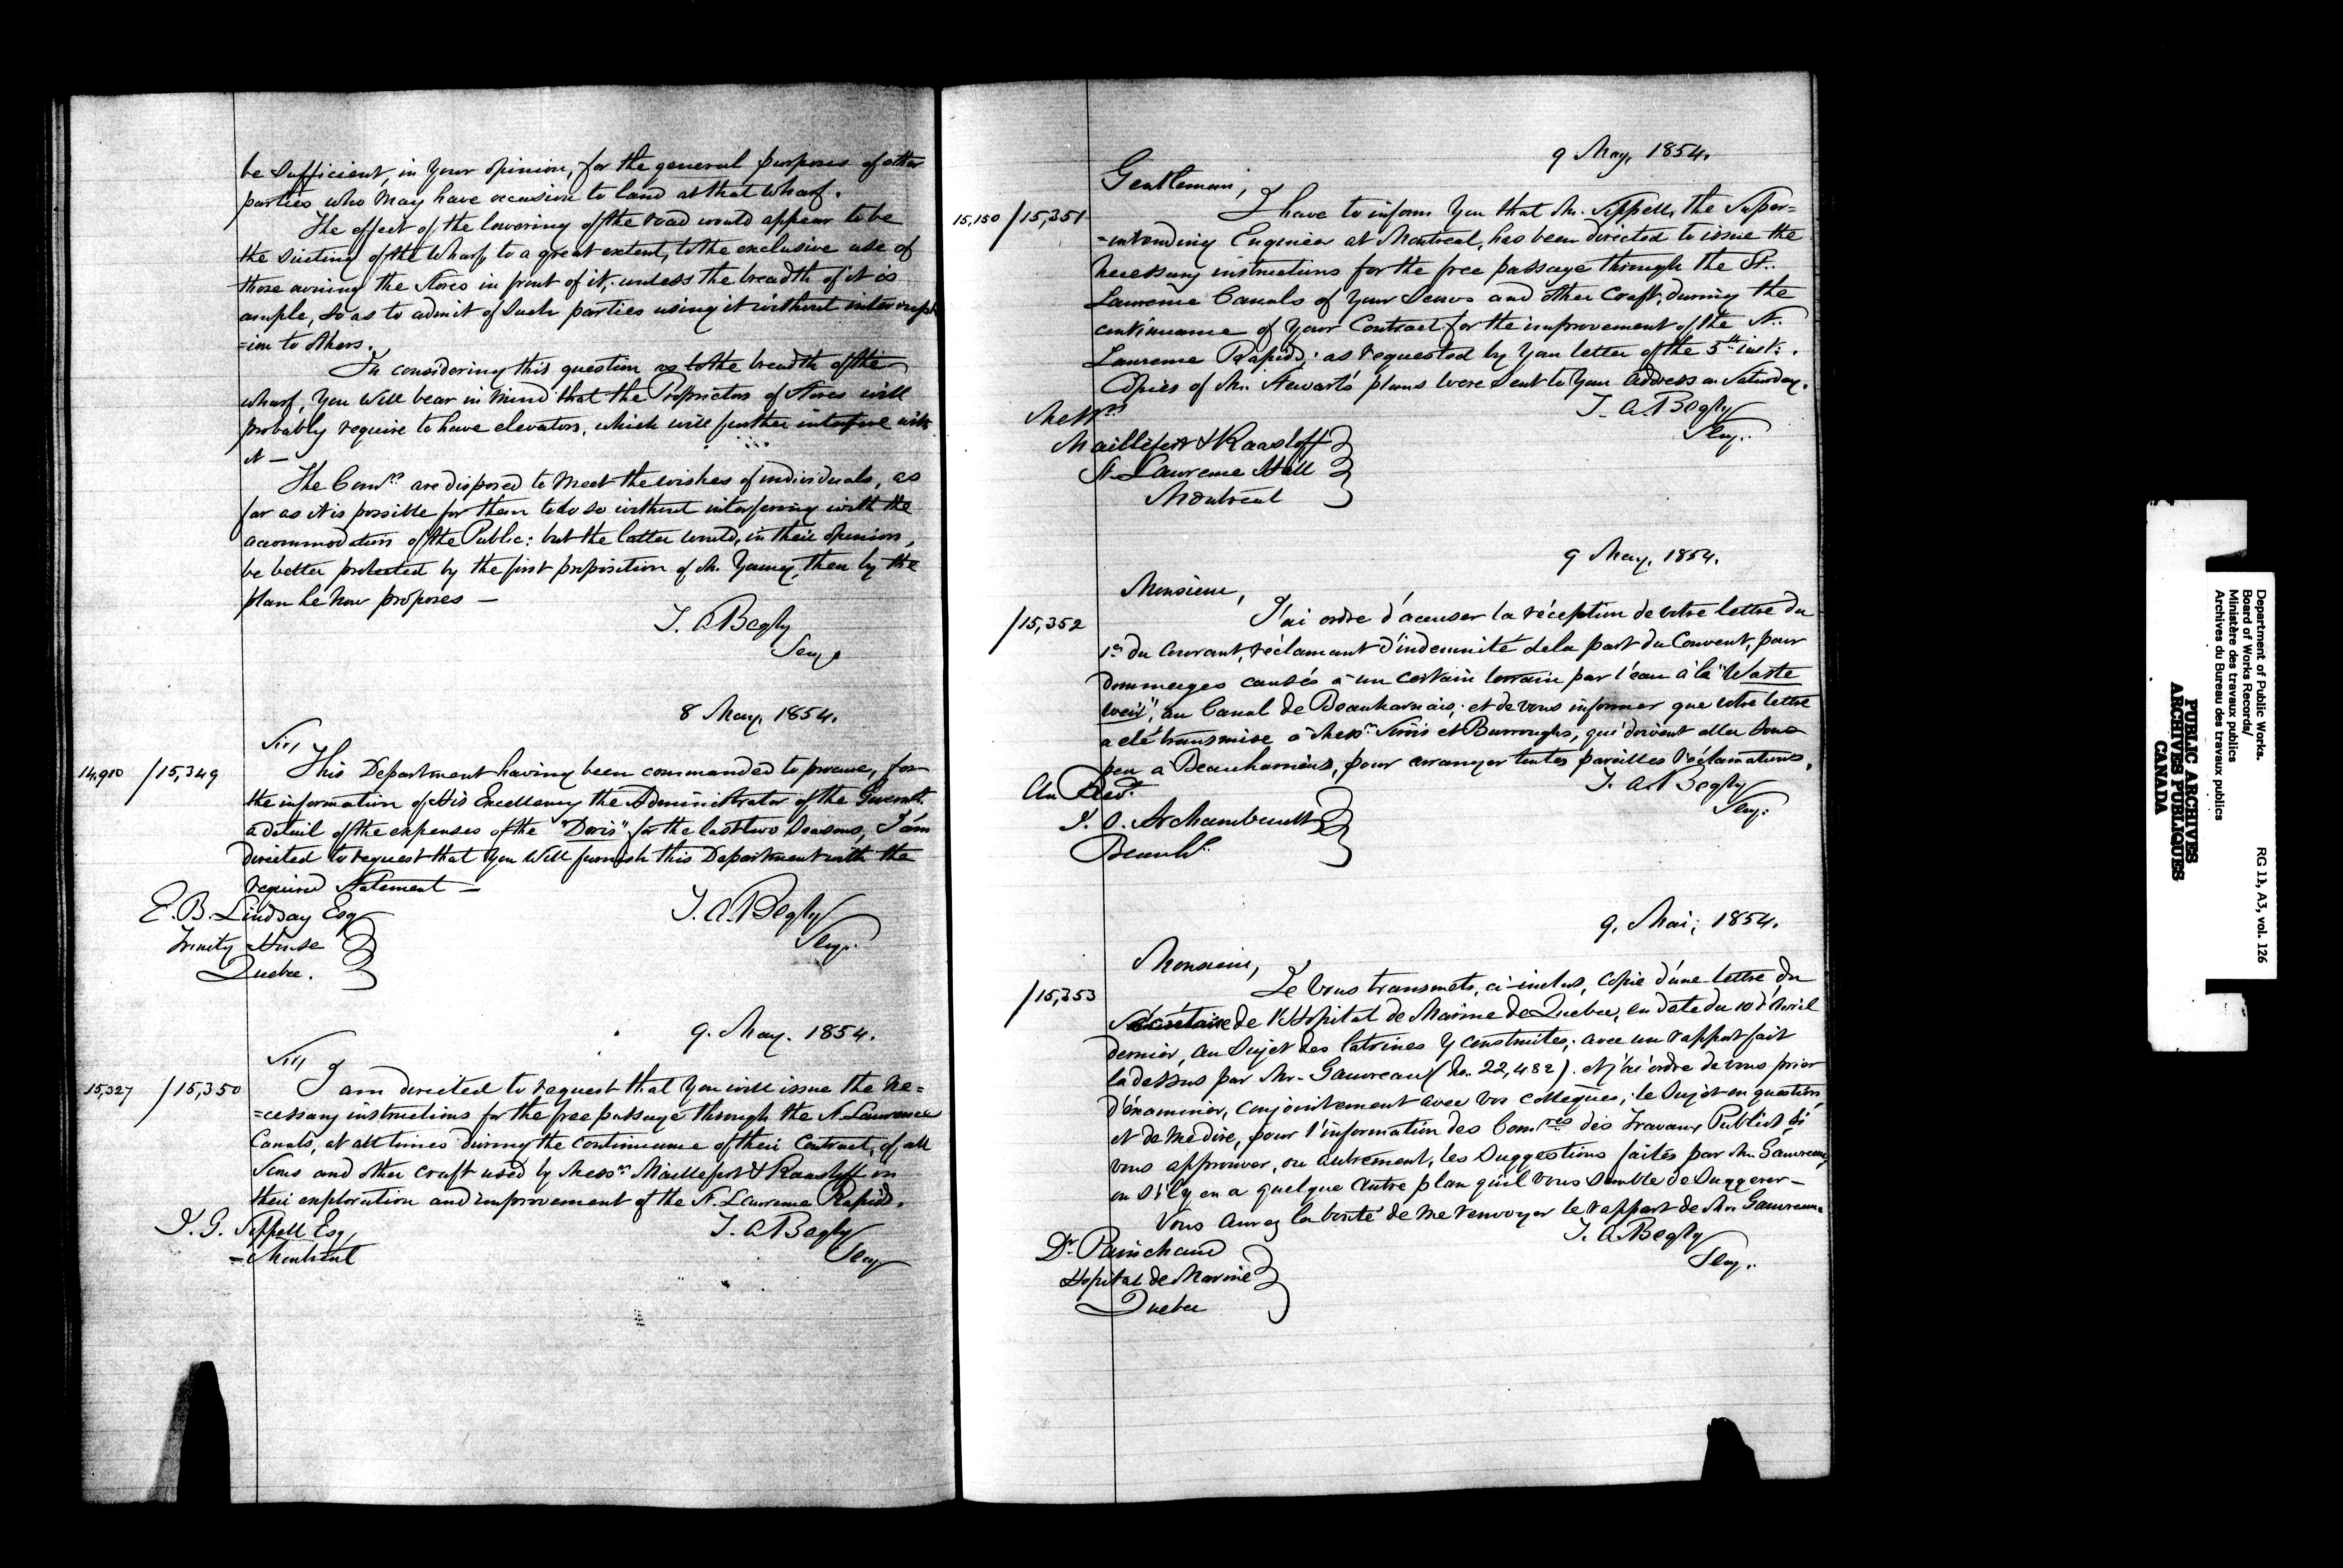 be sufficient, in your opinion, for the general purposes of other
parties who may have occasion to land at that Wharf.
The effect of the lowering of the road would appear to be
the of the Wharf, to a great extent, to the exclusive use of
those owning the Stores in front of it, unless the breadth of it is
ample, so as to admit of such parties using it without interrupt
=ion to others.
In considering this question as to the breadth of the
wharf, you will bear in mind that the Proprietors of Stores will
probably require to have elevators, which will further interfere with
it —
The Comrs. are disposed to meet the wishes of individuals, as
far as it is possible for them to do so without interfering with the
accommodation of the Public: but the latter would, in their opinion,
be better protected by the first proposition of Mr. Young, than by the
plan he now proposes —
T. A. Begly
Secy.
8 May, 1854.
14,910 /15,349
Sir,
This Department having been commanded to procure, for
the information of His Excellency the Administrator of the Governt.
a detail of the expenses of the "Doris" for the last two Seasons, I am
directed to request that you will furnish this Department with the
required Statement —
T. A. Begly
Secy.
E. B. Lindsay Esq
Trinity House
Quebec.
9. May. 1854.
15,327 /15,350
Sir,
I am directed to request that you will issue the ne=
=cessary instructions for the free passage through the St. Lawrence
Canals, at all times during the continuance of their Contract, of all
Scows and other craft used by Messrs Maillefert & Raasloff in
their exploration and improvement of the St. Lawrence Rapids.
T. A. Begly
Secy
J. G. Sippell Esq,
= Montreal
9 May, 1854.
Gentlemen,
15,150 /15,351
I have to inform you that Mr. Sippell, the Super=
=intending Engineer at Montreal, has been directed to issue the
necessary instructions for the free passage through the St..
Lawrence Canals of your Scows and other Craft, during the
continuance of your Contract for the improvement of the St..
Lawrence Rapids; as requested by your letter of the 5th inst:.
Copies of Mr. Stewart's plans were sent to your address on Saturday.
T. A. Begly
Secy..
Messrs
Maillefert & Raasloff
St. Lawrence Hall
Montreal
9 May, 1854.
Monsieur,
/15,352
J'ai ordre d'accuser la réception de votre lettre du
1er du Courant, réclamant d'indemnité de la part du Couvent, pour
dommages causés à un certain terrain par l'eau à la "Waste
weir", au Canal de Beauharnais; et de vous informer que votre lettre
a été transmise à Messrs. Simis et Burroughs, qui doivent aller sous
peu a Beauharnais, pour arranger toutes pareilles réclamations.
T. A. Begly
Secy.
Au Revd.
J. O. Archambault
Beauhs.
9. Mai; 1854.
Monsieur,
/15,353
Je vous transmets, ci-inclus, copie d'une lettre du
Secrétaire de l'Hopital de Marine de Quebec, en date du 10 d'Avril
dernier, au sujet des latrines y construites; avec un rapport fait
la dessus par Mr. Gauvreau (No. 22,482). et j'ai ordre de vous prier
d'examiner, conjointement avec vos collegues, le sujet en question,
et de me dire, pour l'information des Comres des Travaux Publics si
vous approuvez, ou autrement, les suggestions faites par Mr. Gauvreau,
ou s'il y en a quelque autre plan qu'il vous semble de suggerer —
Vous aurez la bonté de me renvoyer le rapport de Mr. Gauvreau
T. A. Begly
Secy.
Dr. Painchaud
Hopital de Marine
Quebec
Department of Public Works.
Board of Works Records/
Ministère des travaux publics
Archives du Bureau des travaux publics
RG 11, A3, vol. 126
PUBLIC ARCHIVES
ARCHIVES PUBLIQUES
CANADA